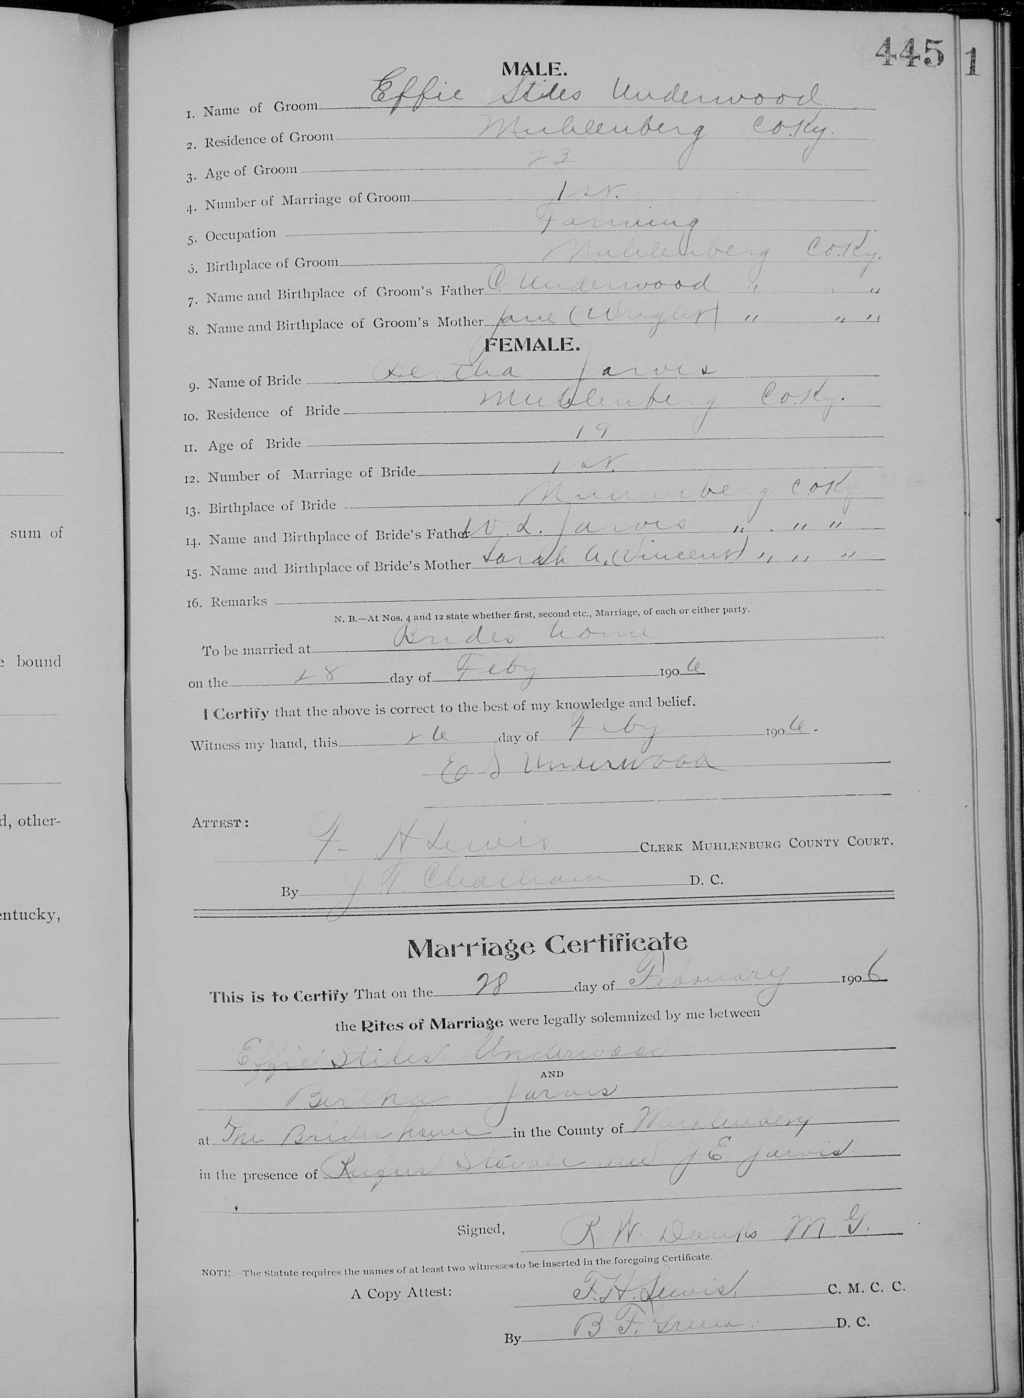 445 1
MALE.
1. Name of Groom Effie Stiles Underwood
2. Residence of Groom Muhlenberg Co. Ky.
3. Age of Groom 23
4. Number of Marriage of Groom 1st.
5. Occupation Farming
6. Birthplace of Groom Muhlenberg Co. Ky.
7. Name and Birthplace of Groom's Father C. Underwood " " "
8. Name and Birthplace of Groom's Mother Jane (Wright) " " "
FEMALE.
9. Name of Bride Bertha Jarvis
10. Residence of Bride Muhlenberg Co. Ky.
11. Age of Bride 19
12. Number of Marriage of Bride 1st.
13. Birthplace of Bride Muhlenberg Co Ky.
14. Name and Birthplace of Bride's Father W. L. Jarvis " " "
15. Name and Birthplace of Bride's Mother Sarah A. (Vincent) " " "
16. Remarks
N. B.—At Nos. 4 and 12 state whether first, second etc., Marriage, of each or either party.
To be married at Brides home
on the 28 day of Feby 1906
I Certify that the above is correct to the best of my knowledge and belief.
Witness my hand, this 26 day of Feby 1906.
E S Underwood
ATTEST:
F. H Lewis CLERK MUHLENBURG COUNTY COURT.
By J. T. Chatham D. C.
Marriage Certificate
This is to Certify That on the 28 day of February 1906
the Rites of Marriage were legally solemnized by me between
Effie Stiles Underwood
AND
Bertha Jarvis
at The Brides home in the County of Muhlenberg
in the presence of Rufus Stovall and J. E. Jarvis
Signed, R. W. M. G.
NOTE—The Statute requires the names of at least two witnesses to be inserted in the foregoing Certificate.
A Copy Attest: F. H. Lewis C. M. C. C.
By B. F. Green D. C.
sum of
bound
d, other-
entucky,